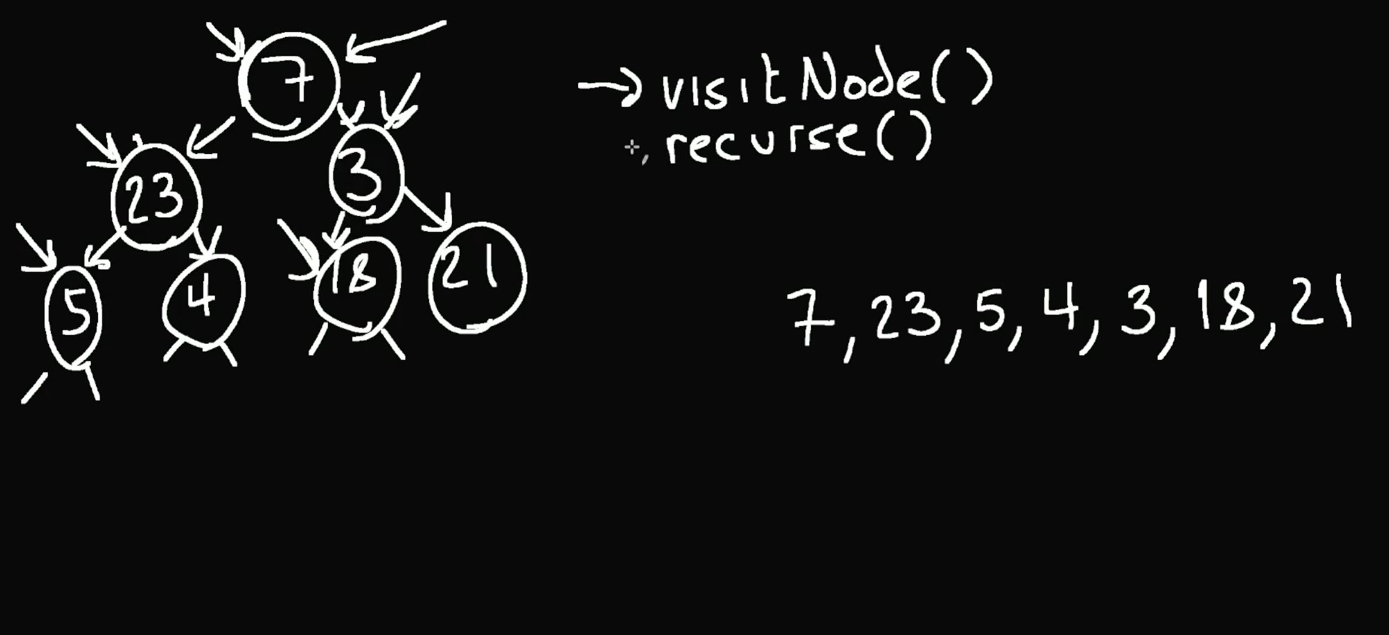 7
23
3
5
4
18
21
→ visitNode()
recurse()
7, 23, 5, 4, 3, 18, 21